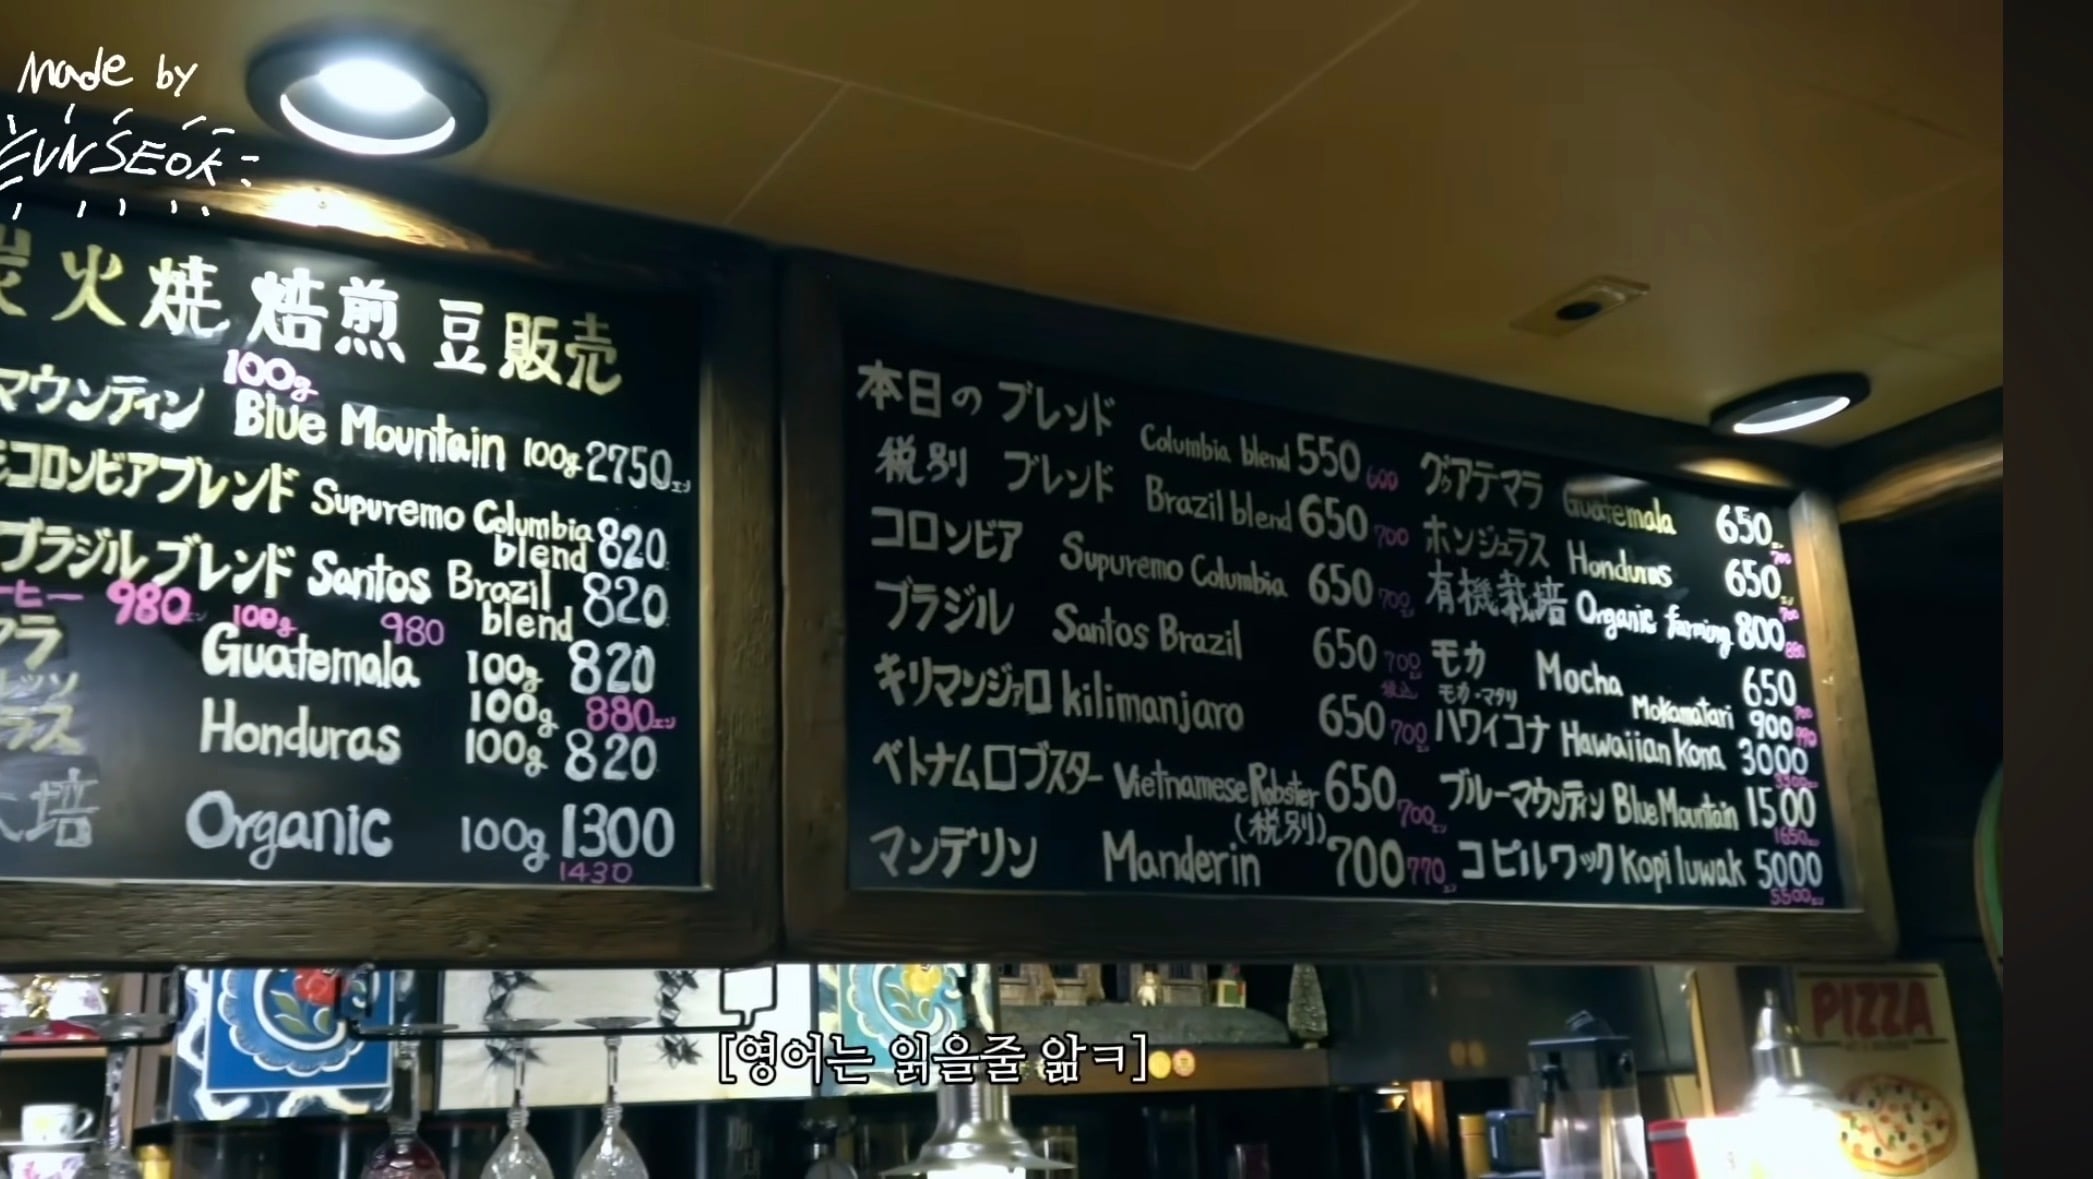 made by
EUNSEOK
炭火焼 焙煎 豆販売
100g
マウンティン Blue Mountain 100g 2750エン
コロンビアブレンド Supuremo Columbia blend 820
ブラジルブレンド Santos Brazil blend 820
ーヒー 980エン 100g 980
ラ Guatemala 100g 820
100g 880エン
ラス Honduras 100g 820
培 Organic 100g 1300
1430
本日の ブレンド Columbia blend 550 600
税別 ブレンド Brazil blend 650 700
コロンビア Supuremo Columbia 650 700
ブラジル Santos Brazil 650 700
税込
キリマンジァロ kilimanjaro 650 700
ベトナムロブスター Vietnamese Robster 650 700エン
(税別)
マンデリン Manderin 700 770エン
グゥアテマラ Guatemala 650エン
700
ホンジュラス Honduras 650エン
700
有機栽培 Organic farming 800
880
モカ Mocha 650
700
モカ・マタリ Mokamatari 900
990
ハワイコナ Hawaiian Kona 3000
3300エン
ブルーマウンティン Blue Mountain 1500
1650エン
コピルワック Kopi luwak 5000
5500エン
[영어는 읽을줄 앎ㅋ]
PIZZA